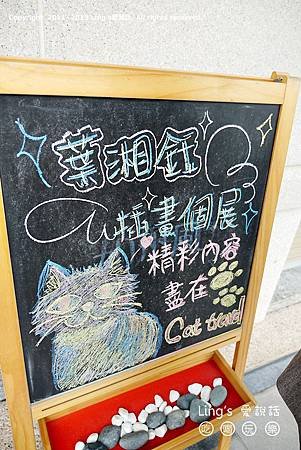 Copyright 2011 - 2013 Ling's愛說話. All rights reserved.
葉湘鈺
插畫個展
精彩內容
盡在
Cat travel
Ling's 愛說話
吃喝玩樂